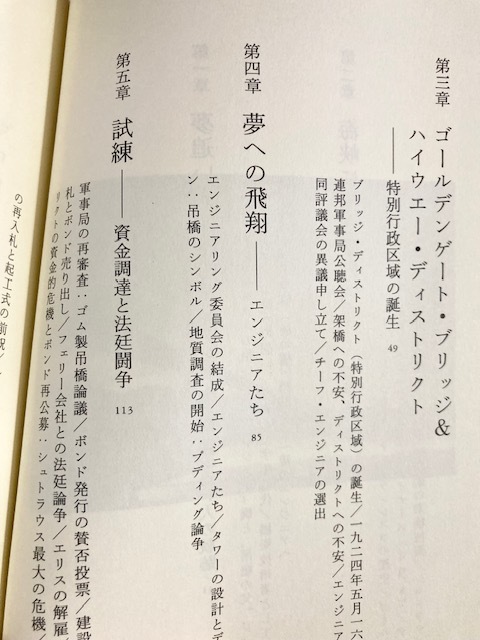 第三章 ゴールデンゲート・ブリッジ&
ハイウエー・ディストリクト
――特別行政区域の誕生 49
ブリッジ・ディストリクト(特別行政区域)の誕生/一九二四年五月一六
連邦軍事局公聴会/架橋への不安、ディストリクトへの不安/エンジニア
同評議会の異議申し立て/チーフ・エンジニアの選出
第四章 夢への飛翔――エンジニアたち 85
エンジニアリング委員会の結成/エンジニアたち/タワーの設計とデ
ン:吊橋のシンボル/地質調査の開始:プディング論争
第五章 試練――資金調達と法廷闘争 113
軍事局の再審査:ゴム製吊橋論議/ボンド発行の賛否投票/建設
札とボンド売り出し/フェリー会社との法廷論争/エリスの解雇
リクトの資金的危機とボンド再公募:シュトラウス最大の危機/
の再入札と起工式の前祝/